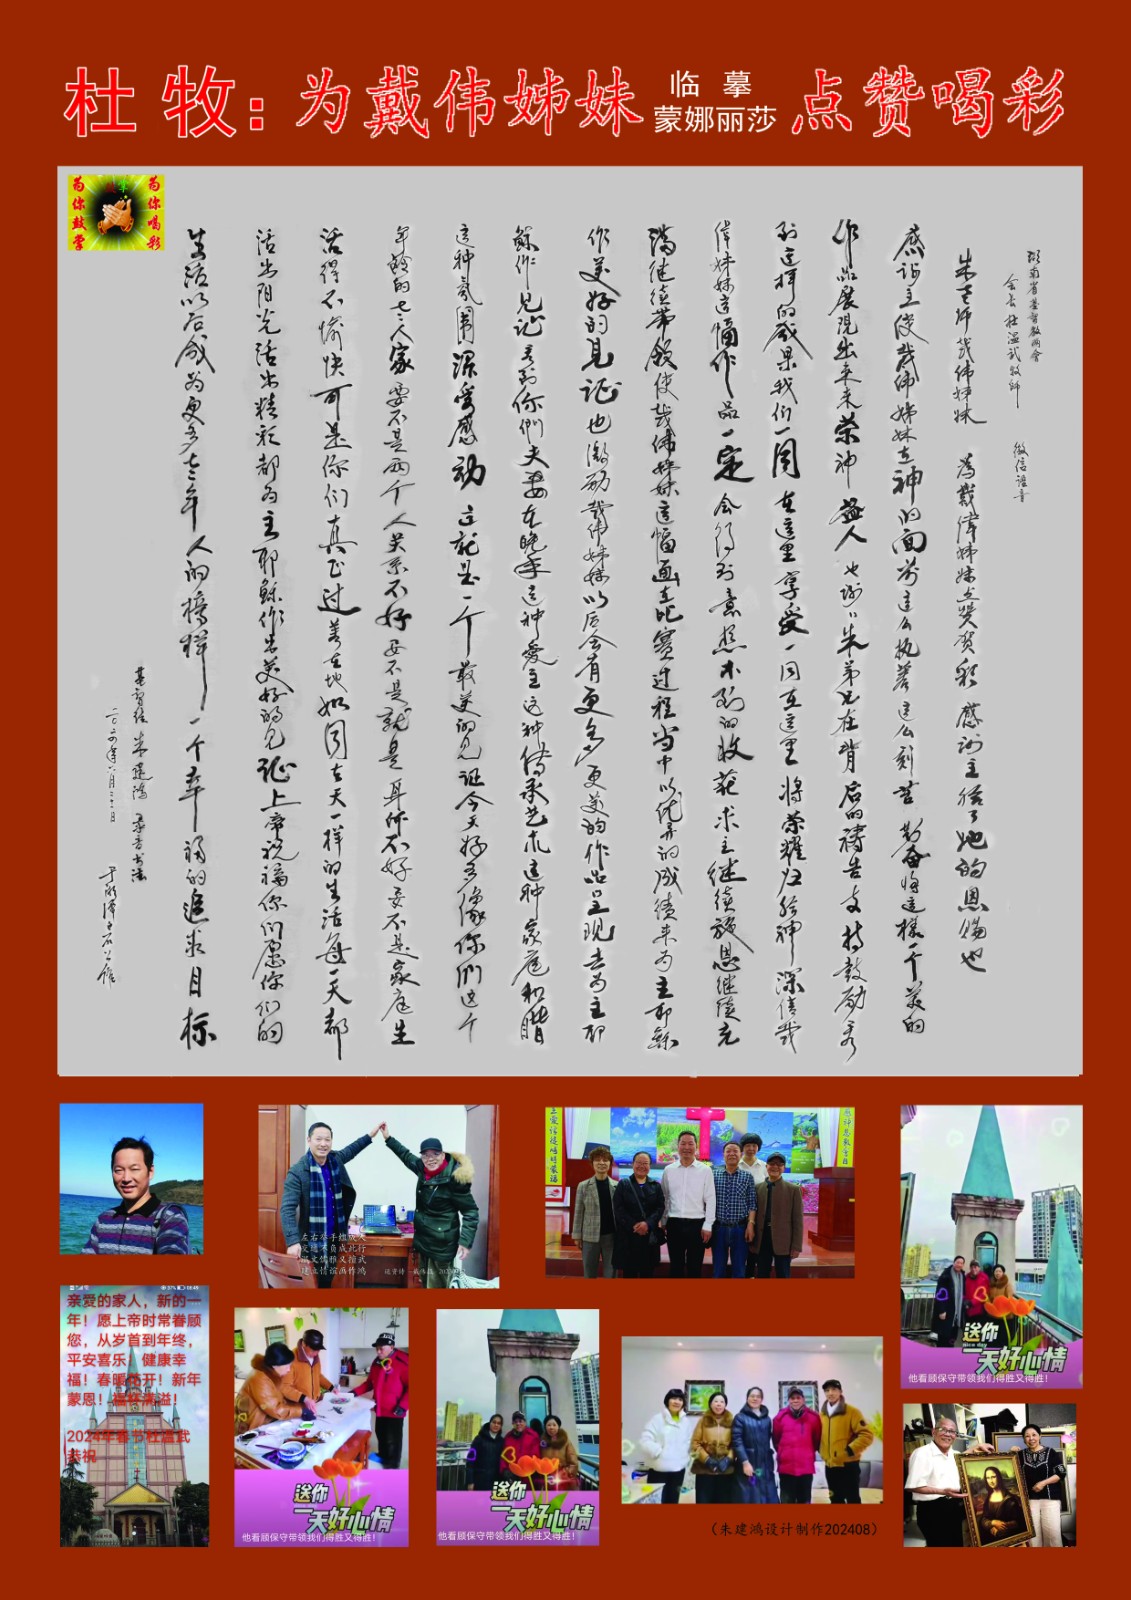 杜牧：为戴伟姊妹临摹蒙娜丽莎点赞喝彩
为你鼓掌
为你喝彩
湖南省基督教两會
会长杜温武牧师
微信語音
朱老师戴伟姊妹
為戴偉姊妹点赞贺彩感谢主给了她的恩赐也
感谢主使戴伟姊妹在神的面前这么执著这么刻苦勤奋将这樣一个美的
作品展现出来来荣神益人也谢谢朱弟兄在背后的祷告支持鼓励看
到这样的成果我们一同在这里享受一同在这里将荣耀归给神深信戴
偉姊妹这幅作品一定会得到意想不到的收获求主继续施恩继续充
满继续带领使戴伟姊妹这幅画在比赛过程当中以优异的成绩来为主耶稣
作美好的见证也激励戴伟姊妹以后会有更多更美的作品呈现去为主耶
稣作见证看到你們夫妻在晚年这种爱主这种传承艺术这种家庭和睦
这种氛围深受感动这就是一个最美的见证今天好多像你们这个
年龄的老人家要不是两个人关系不好要不是就是身体不好要不是家庭生
活得不愉快可是你们真正过着在地如同在天一样的生活每一天都
活出阳光活出精彩都为主耶稣作出美好的见证上帝祝福你们愿你们的
生活以后成为更多老年人的榜样一个幸福的追求目标
基督徒朱建鴻录音书法
左右举手组成人
建立情谊画作鸿
亲爱的家人，新的一
年！愿上帝时常眷顾
您，从岁首到年终，
平安喜乐！健康幸
福！春暖花开！新年
蒙恩！福杯满溢！
2024年春节杜温武
恭祝
送你
一天好心情
他看顾保守带领我们得胜又得胜！
送你
一天好心情
他看顾保守带领我们得胜又得胜！
送你
Nice day
一天好心情
他看顾保守带领我们得胜又得胜！
（朱建鸿设计制作202408）